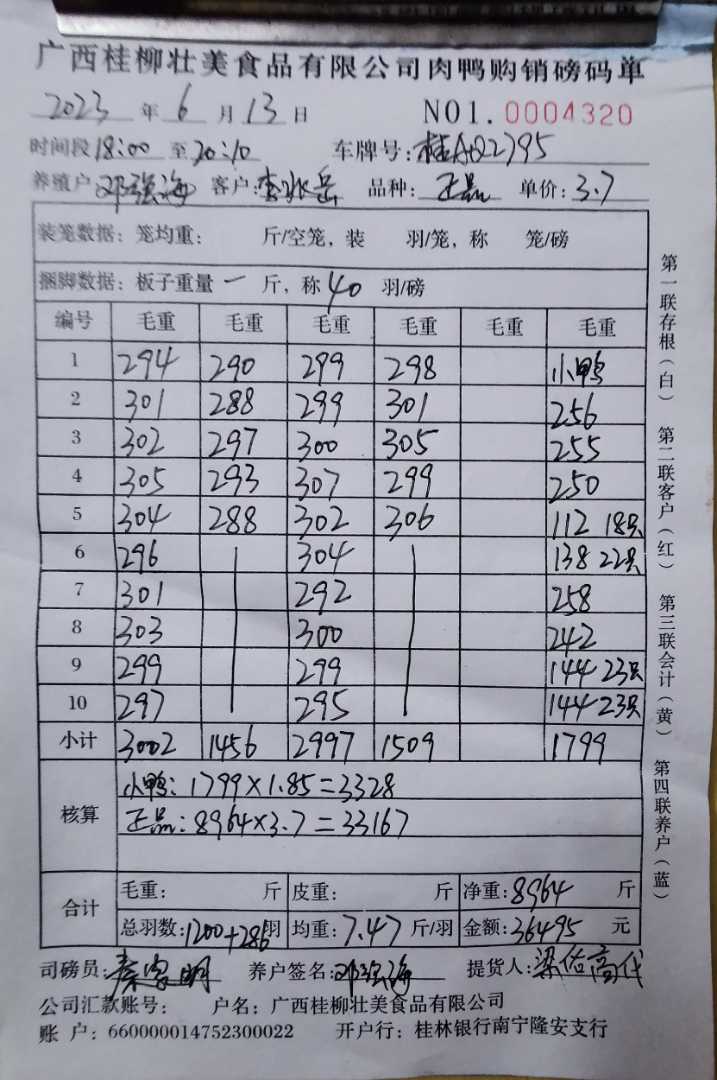 广西桂柳壮美食品有限公司肉鸭购销磅码单
2023 年 6 月 13 日 NO1. 0004320
时间段 18:00 至 20:10 车牌号: 桂AQ2795
养殖户 邓强海 客户: 李水岳 品种: 正品 单价: 3.7
装笼数据: 笼均重: 斤/空笼, 装 羽/笼, 称 笼/磅
捆脚数据: 板子重量 一 斤, 称 40 羽/磅
编号 毛重 毛重 毛重 毛重 毛重 毛重
1 294 290 299 298 小鸭
2 301 288 299 301 256
3 302 297 300 305 255
4 305 293 307 299 250
5 304 288 302 306 112 18只
6 296 304 138 22只
7 301 292 258
8 303 300 242
9 299 299 144 23只
10 297 295 144 23只
小计 3002 1456 2997 1509 1799
核算
小鸭: 1799×1.85=3328
正品: 8964×3.7=33167
合计
毛重: 斤 皮重: 斤 净重: 8964 斤
总羽数: 1200+286 羽 均重: 7.47 斤/羽 金额: 36495 元
司磅员: 秦家明 养户签名: 邓强海 提货人: 梁佑高代
公司汇款账号: 户名: 广西桂柳壮美食品有限公司
账 户: 660000014752300022 开户行: 桂林银行南宁隆安支行
第一联存根(白) 第二联客户(红) 第三联会计(黄) 第四联养户(蓝)